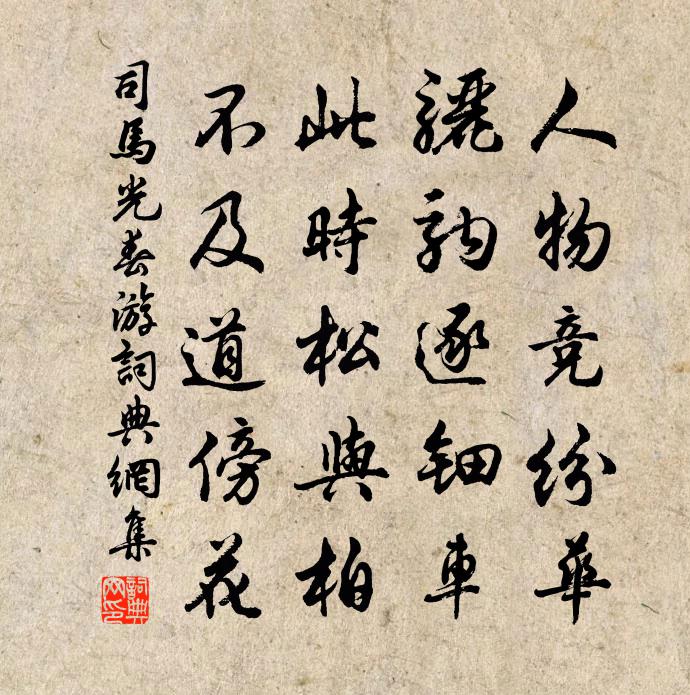 人物竞纷华
骊驹逐钿车
此时松与柏
不及道傍花
司马光春游词典网集
词典网印